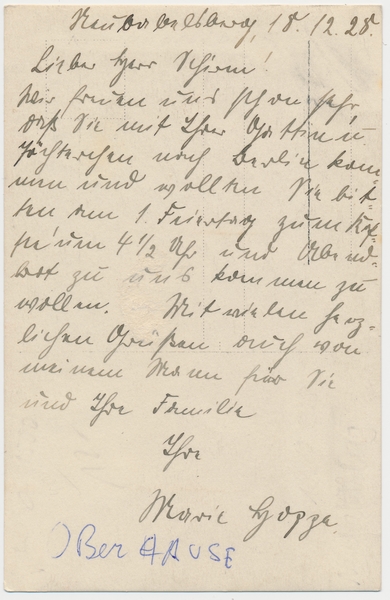 Neubabelsberg, 18.12.28.
Lieber Herr Schirm!
Wir freuen uns schon sehr,
daß Sie mit Ihrer Gattin u
Töchterchen nach Berlin kom-
men und wollten Sie bit-
ten am 1. Feiertag zum Kaf-
fe um 4 1/2 Uhr und Abend-
brot zu uns kommen zu
wollen. Mit vielen herz-
lichen Grüßen auch von
meinem Mann für Sie
und Ihre Familie
Ihre
Marie